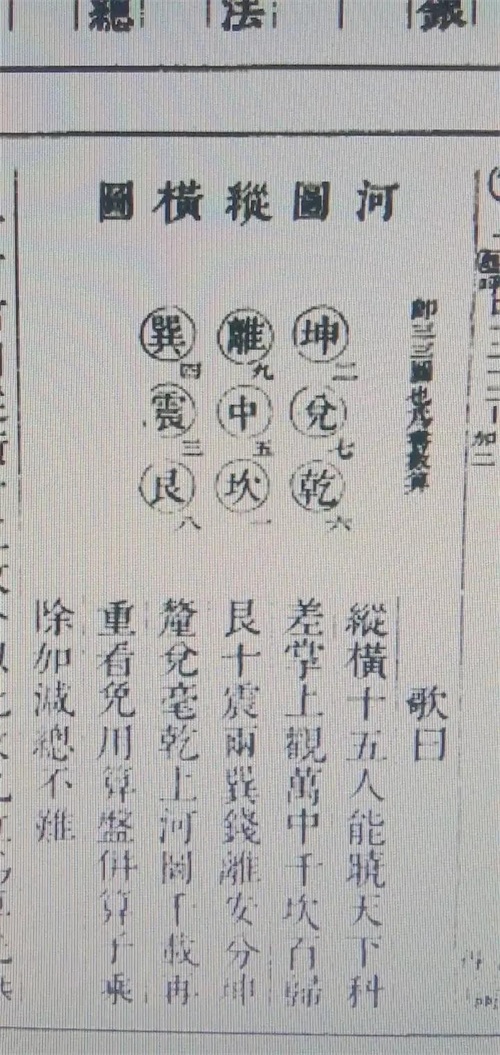 銀
法
總
河圖縱橫圖
即三三圖也凡
坤二兌七乾六
離九中五坎一
巽四震三艮八
歌曰
縱橫十五人能曉天下科
差掌上觀萬中千坎百歸
艮十震兩巽錢離安分坤
釐兌毫乾上河圖千載再
重看免用算盤併算子乘
除加減總不難